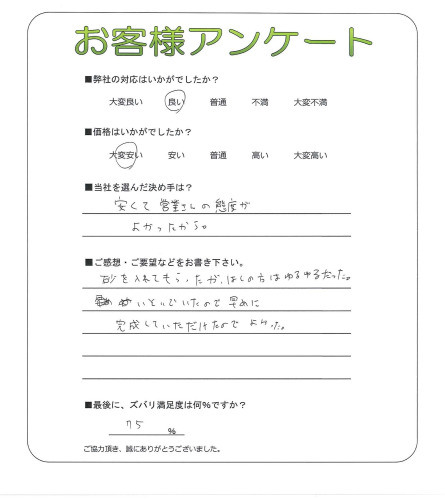 お客様アンケート
■弊社の対応はいかがでしたか？
大変良い 良い 普通 不満 大変不満
■価格はいかがでしたか？
大変安い 安い 普通 高い 大変高い
■当社を選んだ決め手は？
安くて 営業さんの態度が
よかったから。
■ご感想・ご要望などをお書き下さい。
砂を入れてもらったが、はしの方はゆるゆるだった。
いそいでいたので 早めに
完成していただけたので よかった。
■最後に、ズバリ満足度は何%ですか？
75 %
ご協力頂き、誠にありがとうございました。